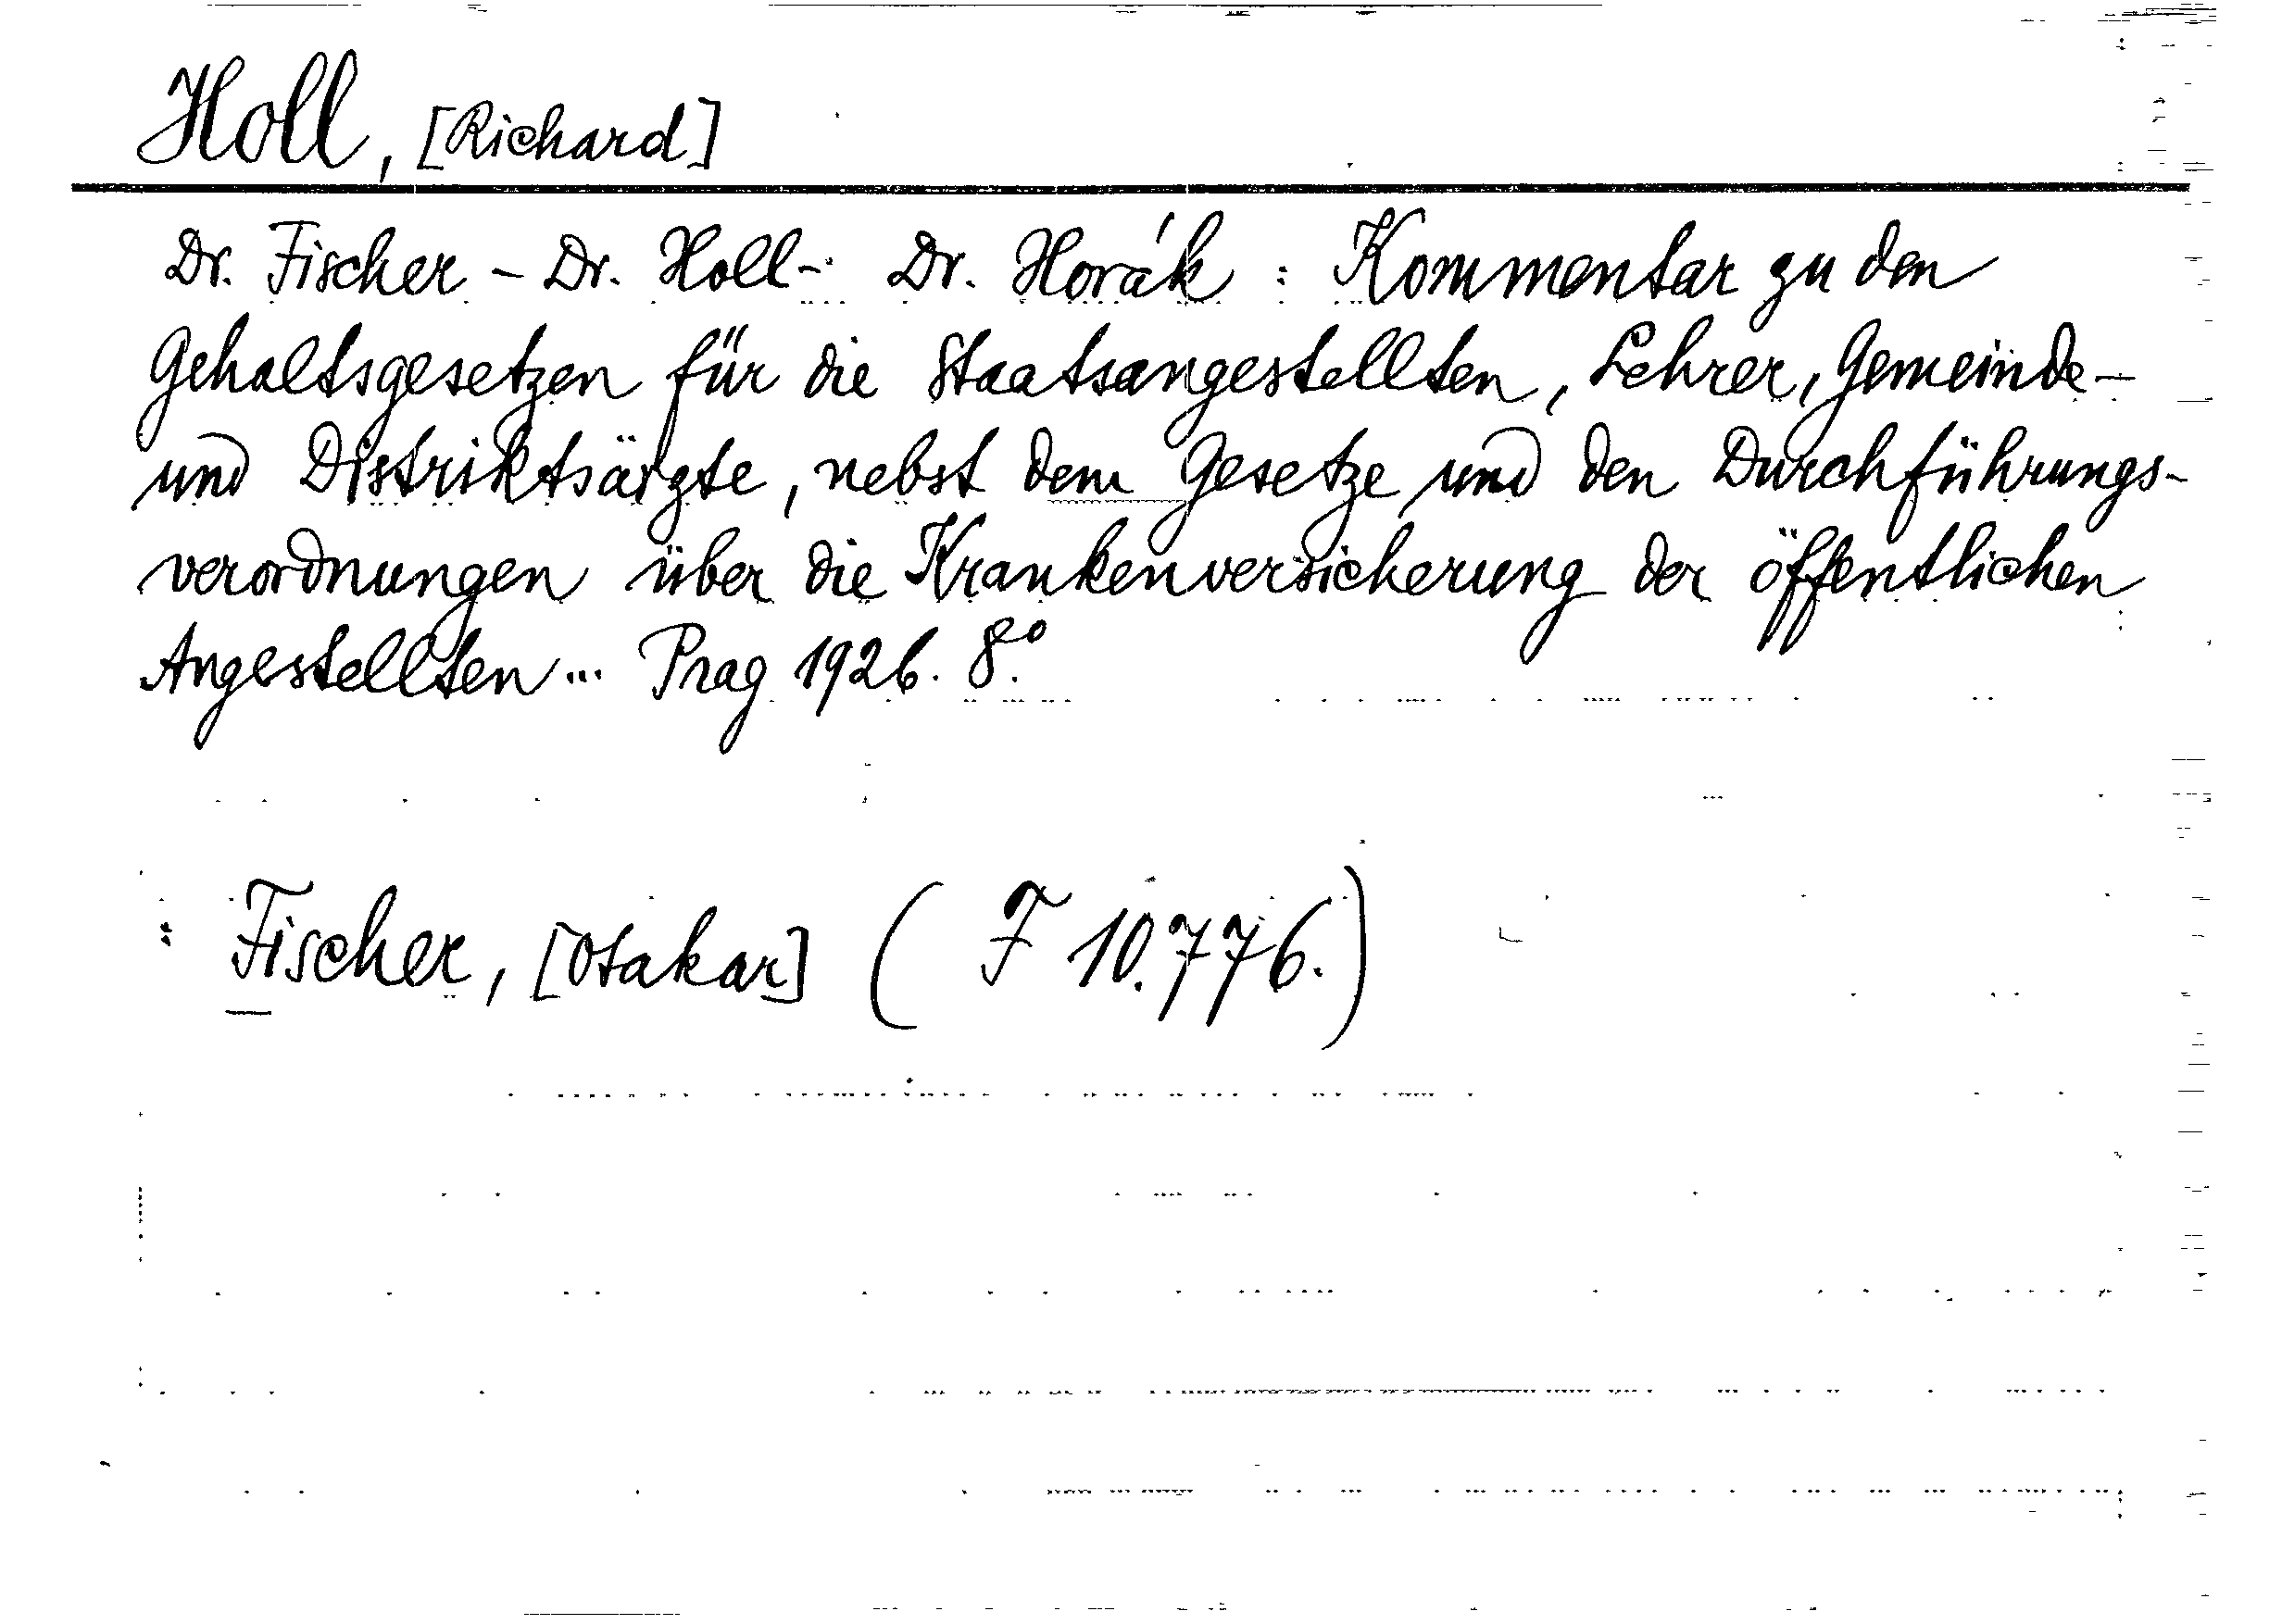 Holl, [Richard]
Dr. Fischer - Dr. Holl - Dr. Horák : Kommentar zu den
Gehaltsgesetzen für die Staatsangestellten, Lehrer, Gemeinde-
und Distriktsärzte, nebst dem Gesetze und den Durchführungs-
verordnungen über die Krankenversicherung der öffentlichen
Angestellten ... Prag 1926. 8°.
Fischer, [Otakar] (F 10.776.)